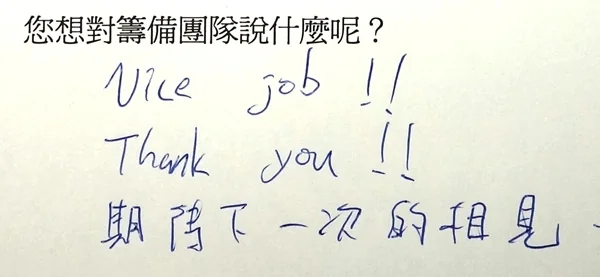 您想對籌備團隊說什麼呢？
Nice job !!
Thank you !!
期待下一次的相見.